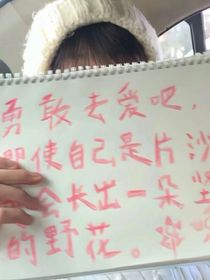 勇敢去爱吧，
即使自己是片沙
会长出一朵坚
的野花。